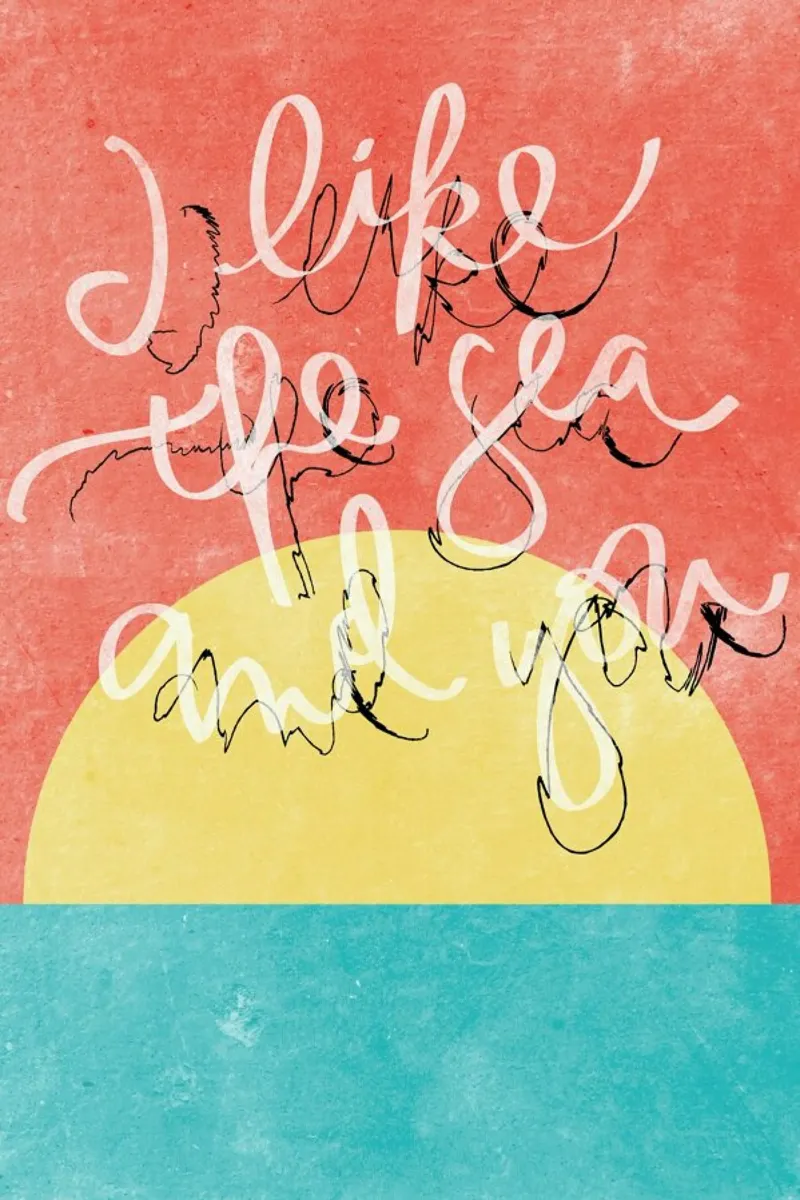 I like
the sea
and you